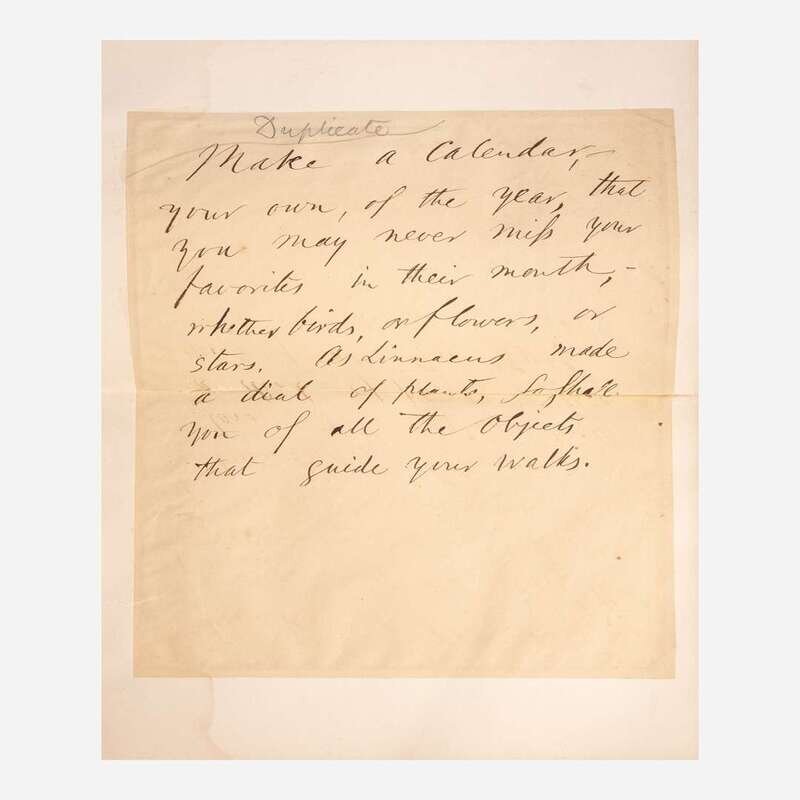 Duplicate
Make a Calendar,—
your own, of the year, that
you may never miſs your
favorites in their month,—
whether birds, or flowers, or
stars. As Linnaeus made
a dial of plants, so shall
you of all the objects
that guide your walks.